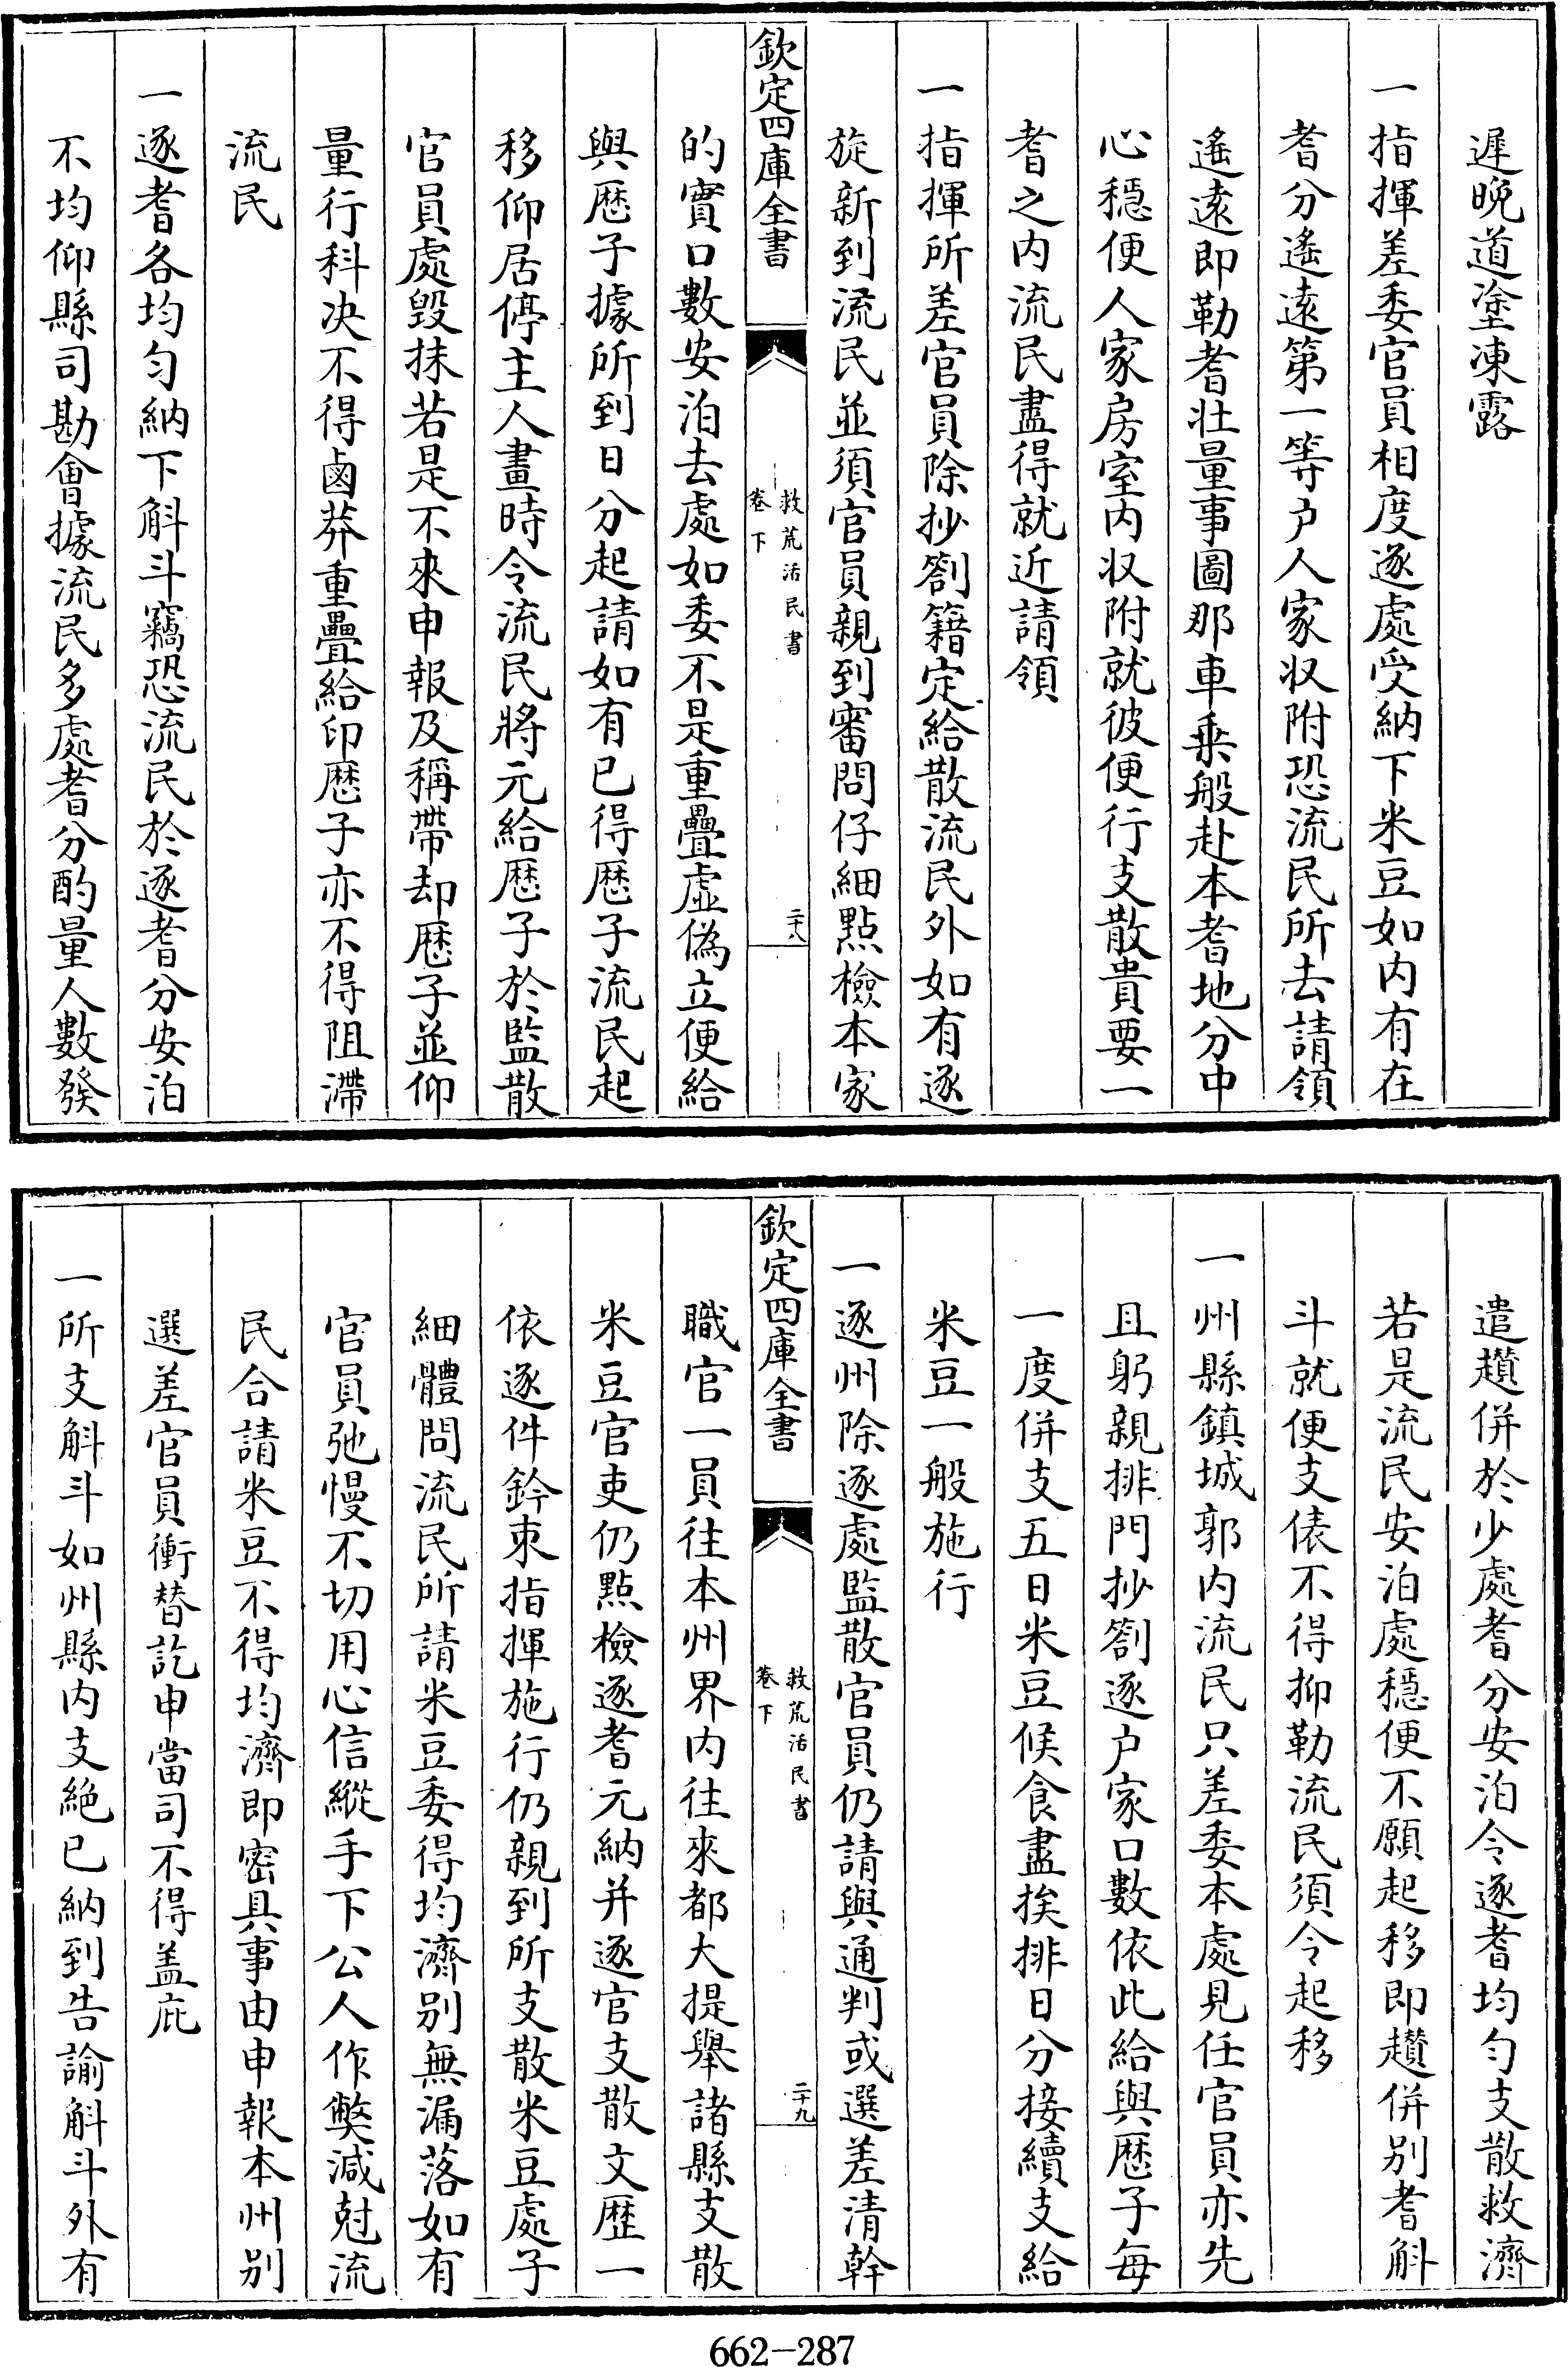 遲晚道塗凍露
一指揮差委官員相度逐處受納下米豆如内有在
耆分遙遠第一等户人家収附恐流民所去請領
遙遠即勒耆壯量事圖那車乗般赴本耆地分中
心穩便人家房室内収附就彼便行支散貴要一
耆之内流民盡得就近請領
一指揮所差官員除抄劄籍定給散流民外如有逐
旋新到流民並須官員親到審問仔細點檢本家
欽定四庫全書
救荒活民書
卷下
二十八
的實口數安泊去處如委不是重疊虛偽立便給
與厯子據所到日分起請如有已得厯子流民起
移仰居停主人畫時令流民將元給厯子於監散
官員處毀抹若是不來申報及稱帶却厯子並仰
量行科决不得鹵莽重疊給印厯子亦不得阻滯
流民
一逐耆各均匀納下斛斗竊恐流民於逐耆分安泊
不均仰縣司勘會據流民多處耆分酌量人數發
遣趲併於少處耆分安泊令逐耆均匀支散救濟
若是流民安泊處穩便不願起移即趲併别耆斛
斗就便支俵不得抑勒流民須令起移
一州縣鎮城郭内流民只差委本處見任官員亦先
且躬親排門抄劄逐户家口數依此給與厯子每
一度併支五日米豆候食盡挨排日分接續支給
米豆一般施行
一逐州除逐處監散官員仍請與通判或選差清幹
欽定四庫全書
救荒活民書
卷下
二十九
職官一員往本州界内往來都大提舉諸縣支散
米豆官吏仍點檢逐耆元納并逐官支散文歷一
依逐件鈐束指揮施行仍親到所支散米豆處子
細體問流民所請米豆委得均濟别無漏落如有
官員弛慢不切用心信縱手下公人作弊減尅流
民合請米豆不得均濟即密具事由申報本州别
選差官員衝替訖申當司不得盖庇
一所支斛斗如州縣内支絶已納到告諭斛斗外有
662-287